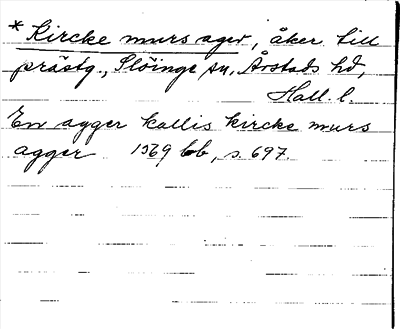 * Kircke murs ager, åker till
prästg., Slöinge sn, Årstads hd,
Hall. l.
En agger kallis kircke murs
agger 1569 lb, s. 697.